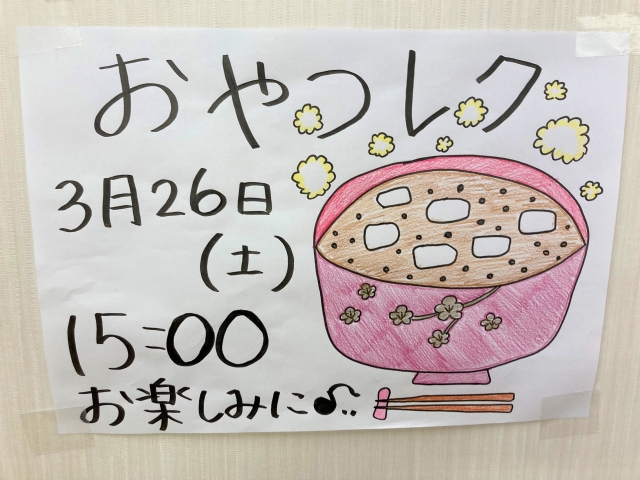 おやつレク
3月26日
(土)
15:00
お楽しみに♪..